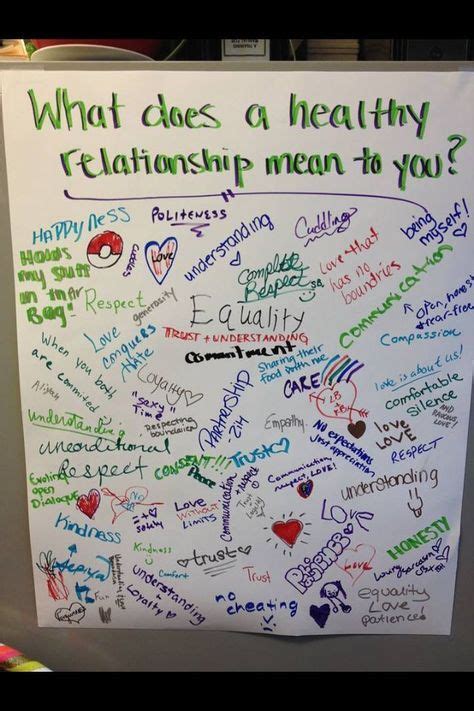 What does a healthy
relationship mean to you?
HAPPYNESS
POLITENESS
understanding
Cuddling
being
myself!
HOLDS
my stuff
in thAr
BAg"
cuddles
LOVE
Complete
Respect
Love that
has no
boundries
Communication
Respect
generosity
Equality
open, honest
+ fear-free
Love
conquers
Hate
TRUST + UNDERSTANDING
Commitment
Compassion
When you both
are commited
Aliyah
Loyalty
Sharing their
food with me
CARE
love is about us!
comfortable
silence
"sexy"
Time
Partnership
understanding
Respecting
boundaries
Empathy
No expectations
Just appreciation
love
LOVE
unconditional
Respect
RESPECT
CONSENT!!!
Trust
Evolving
open
Dialogue
Communication
respect LOVE!
understanding
Love
WITHOUT
LIMITS
Communication
Trust
Loyalty
Kindness
LOVE
HONESTY
Kindness
trust
Patience
Love
Comfort
Trust
understanding
Loyalty
Fun
no
cheating
equality
Love
patience!